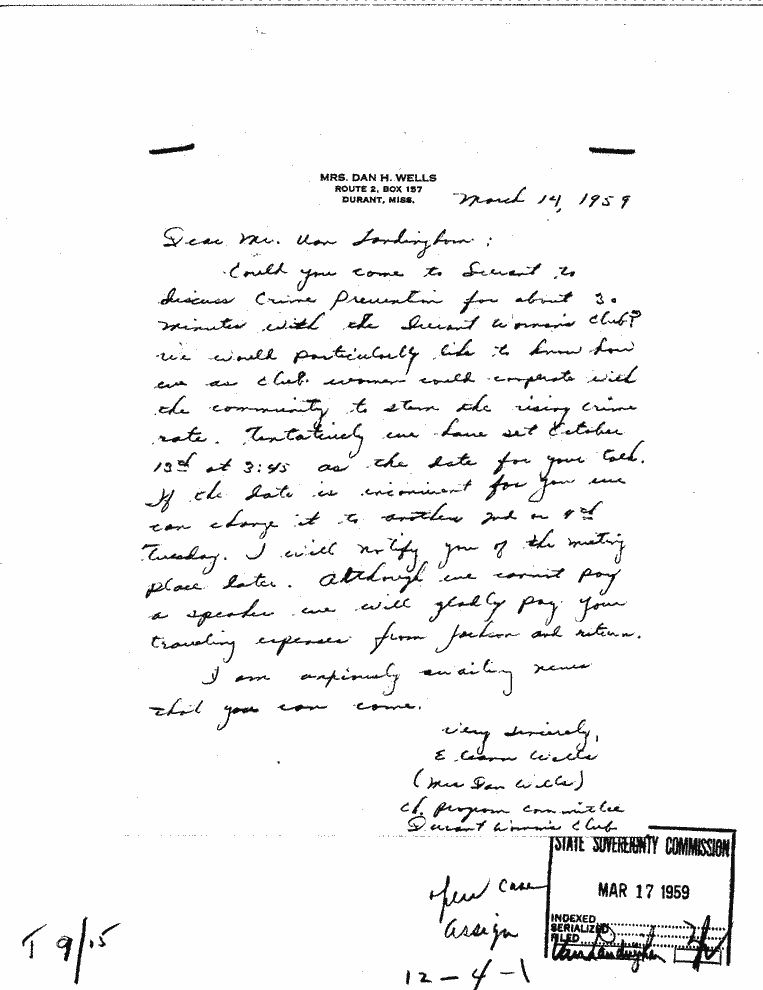 MRS. DAN H. WELLS
ROUTE 2, BOX 157
DURANT, MISS.
March 14, 1959
Dear Mr. Van Landingham:
Could you come to Durant to
discuss Crime Prevention for about 30
minutes with the Durant Woman's Club?
We would particularly like to know how
we as club women could cooperate with
the community to stem the rising crime
rate. Tentatively we have set October
13th at 3:45 as the date for your talk.
If the date is inconvenient for you we
can change it to another 2nd or 4th
Tuesday. I will notify you of the meeting
place later. Although we cannot pay
a speaker we will gladly pay your
traveling expenses from Jackson and return.
I am anxiously awaiting news
that you can come.
Very Sincerely,
Wells
(Mrs Dan Wells)
Ch. Program Committee
Durant Woman's Club
STATE SOVEREIGNTY COMMISSION
MAR 17 1959
INDEXED
SERIALIZED
FILED
Van Landingham
open case
assign
12-4-1
T 9/15